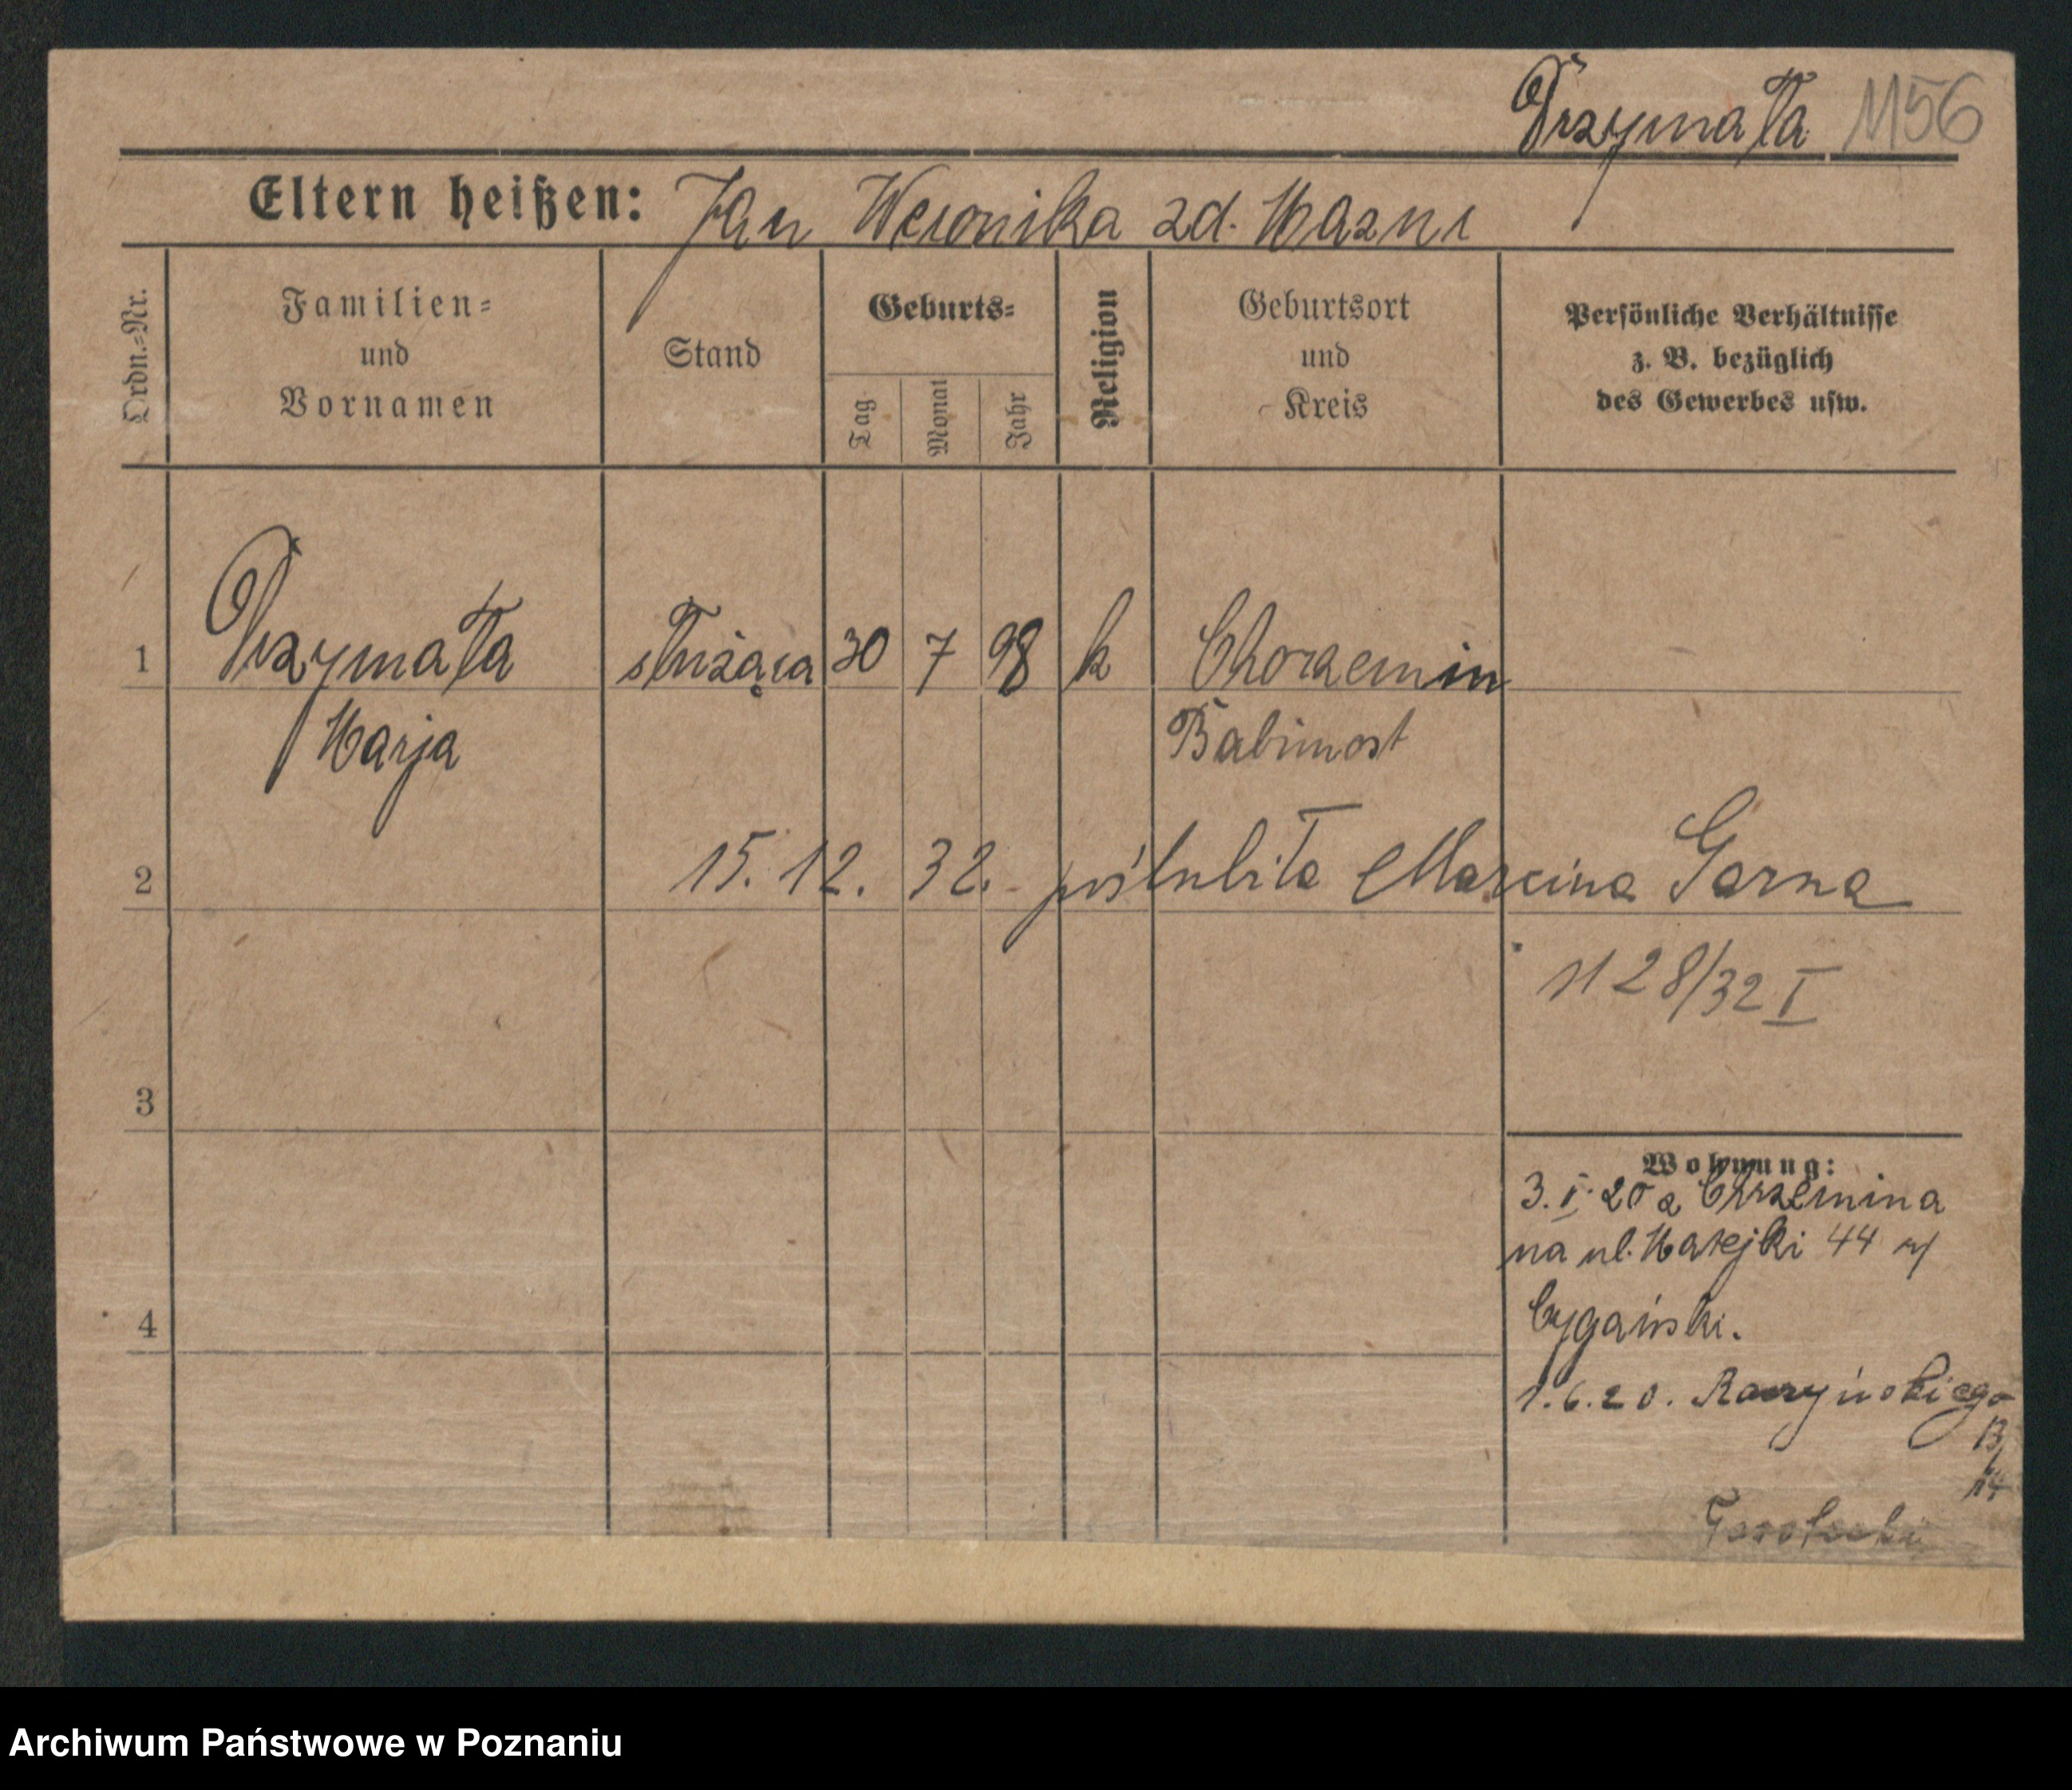 Przymała 1156
Eltern heißen: Jan Weronika zd. Mazur
Ordn.-Nr.
Familien-
und
Vornamen
Stand
Geburts-
Tag
Monat
Jahr
Religion
Geburtsort
und
Kreis
Persönliche Verhältnisse
z. B. bezüglich
des Gewerbes usw.
1 Przymała służąca 30 7 98 k Chorzemin
Marja Babimost
2 15. 12. 32. poślubiła Marcina
28/32 I
3
Wohnung:
3. I. 20 z Chorzemina
na ul. Matejki 44
Cygański.
4
1.6.20. Raczyńskiego
13
14
Archiwum Państwowe w Poznaniu